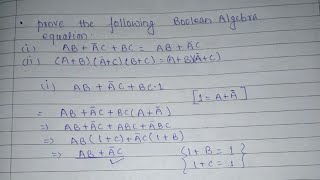 • prove the following Boolean Algebra
equation:-
(i) AB + ĀC + BC = AB + ĀC
(ii) (A+B)(Ā+C)(B+C) = (A+B)(Ā+C)
(i) AB + ĀC + BC·1
[1 = A+Ā]
= AB + ĀC + BC(A+Ā)
⇒ AB + ĀC + ABC + ĀBC
⇒ AB(1+C) + ĀC(1+B)
⇒ AB + ĀC
{1+B = 1}
{1+C = 1}